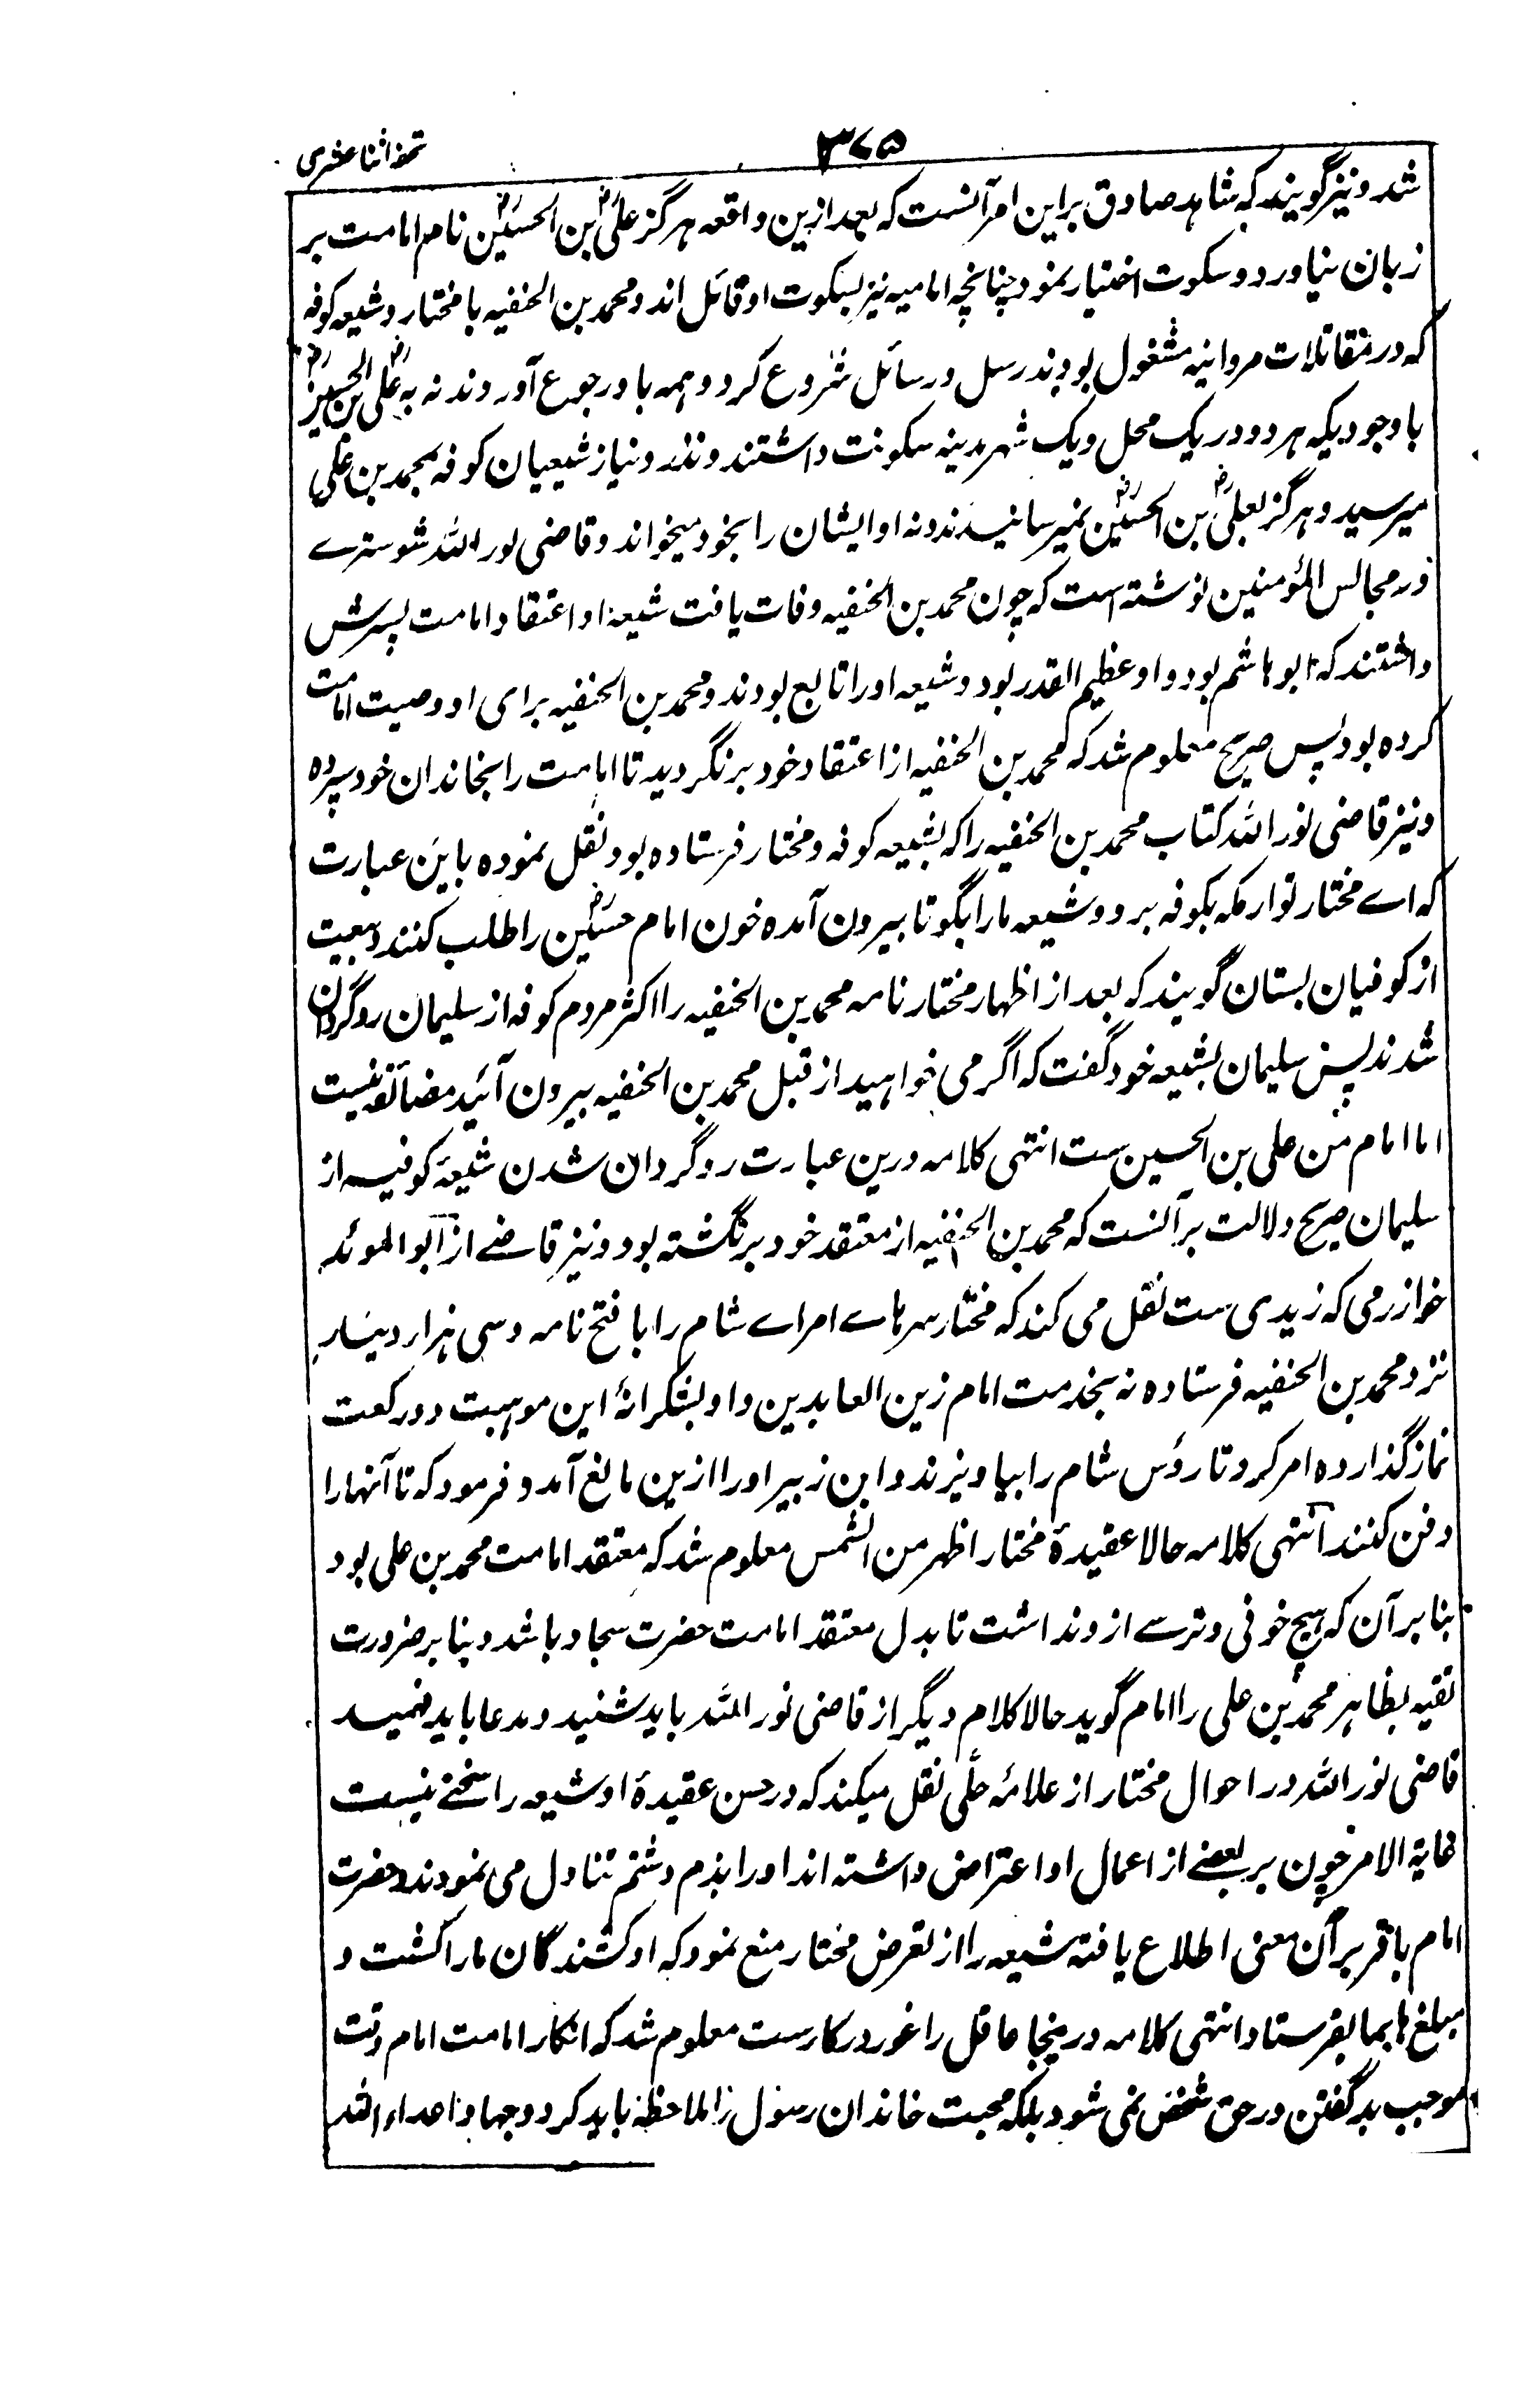 تحفه اثنا عشری
۳۷۵
شد و نیز گویند که شاهد صادق براین امر آنست که بعد ازین واقعه هرگز علیؓ بن الحسینؓ نام امامت بر
زبان نیاورد و سکوت اختیار نمود چنانچه امامیه نیز بسکوت او قائل اند و محمد بن الحنفیه با مختار و شیعه کوفه
که در مقاتلات مروانیه مشغول بودند رسل و رسائل شروع کرد و همه باو رجوع آوردند نه به علیؓ بن الحسینؓ
باوجودیکه هر دو در یک محل و یک شهر مدینه سکونت داشتند و نذر و نیاز شیعیان کوفه بمحمد بن علی
میرسید و هرگز بعلیؓ بن الحسینؓ نمیرسانیدند و نه او ایشان را بخود میخواند و قاضی نور الله شوسترے
در مجالس المؤمنین نوشته است که چون محمد بن الحنفیه وفات یافت شیعهٔ او اعتقاد امامت پسرش
داشتند که ابو هاشم بود و او عظیم القدر بود و شیعه او را تابع بودند و محمد بن الحنفیه برای او وصیت امامت
کرده بود پس صریح معلوم شد که محمد بن الحنفیه از اعتقاد خود برنگردید تا امامت را بخاندان خود سپرده
و نیز قاضی نور الله کتاب محمد بن الحنفیه را که بشیعه کوفه و مختار فرستاده بود نقل نموده باین عبارت
که اے مختار تو از مکه بکوفه برو و شیعه ما را بگو تا بیرون آمده خون امام حسینؓ را طلب کنند و بیعت
از کوفیان بستان گویند که بعد از اظهار مختار نامه محمد بن الحنفیه را اکثر مردم کوفه از سلیمان روگردان
شدند پس سلیمان بشیعه خود گفت که اگر می خواهید از قبل محمد بن الحنفیه بیرون آئید مضائقه نیست
اما امام من علی بن الحسین ست انتهی کلامه درین عبارت روگردان شدن شیعهٔ کوفیه از
سلیمان صریح دلالت بر آنست که محمد بن الحنفیه از معتقد خود برنگشته بود و نیز قاضے از ابو المؤید
خوازرمی که زیدی ست نقل می کند که مختار سرهاے امراے شام را با فتح نامه و سی هزار دینار
نزد محمد بن الحنفیه فرستاده نه بخدمت امام زین العابدین و او بشکرانهٔ این موهبت دو رکعت
نماز گذارده امر کرد تا رؤس شام را بیاویزند و ابن زبیر او را ازین مانع آمد و فرمود که تا آنها را
دفن کنند انتهی کلامه حالا عقیدهٔ مختار اظهر من الشمس معلوم شد که معتقد امامت محمد بن علی بود
بنا بر آن که هیچ خوفی و ترسے ازو نداشت تا بدل معتقد امامت حضرت سجاد باشد و بنا بر ضرورت
تقیه بظاهر محمد بن علی را امام گوید حالا کلام دیگر از قاضی نور الله باید شنید و مدعا باید فهمید
قاضی نور الله در احوال مختار از علامهٔ حلّی نقل میکند که در حسن عقیدهٔ او شیعه را سخنے نیست
غایة الامر چون بر بعضے از اعمال او اعتراض داشته اند او را بذم و شتم تناول می نمودند و حضرت
امام باقر بر آن معنی اطلاع یافته شیعه را از تعرض مختار منع نمود که او کشندگان ما را کشت و
مبلغ ها بما بفرستاد انتهی کلامه درینجا عاقل را غور درکارست معلوم شد که انکار امامت امام وقت
موجب بد گفتن در حق شخص نمی شود بلکه محبت خاندان رسول را ملاحظه باید کرد و جهاد با اعداء الله